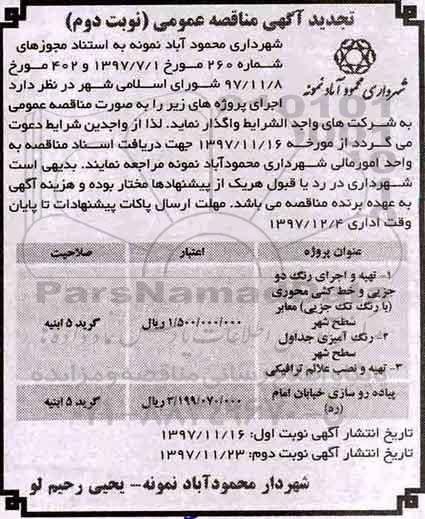 تجدید آگهی مناقصه عمومی (نوبت دوم)
شهرداری محمود آباد نمونه به استناد مجوزهای
شماره ۲۶۰ مورخ ۱۳۹۷/۷/۱ و ۴۰۲ مورخ
۹۷/۱۱/۸ شورای اسلامی شهر در نظر دارد
اجرای پروژه های زیر را به صورت مناقصه عمومی
شهرداری محمودآباد نمونه
به شرکت های واجد الشرایط واگذار نماید. لذا از واجدین شرایط دعوت
می گردد از مورخه ۱۳۹۷/۱۱/۱۶ جهت دریافت اسناد مناقصه به
واحد امورمالی شهرداری محمودآباد نمونه مراجعه نمایند. بدیهی است
شهرداری در رد یا قبول هریک از پیشنهادها مختار بوده و هزینه آگهی
به عهده برنده مناقصه می باشد. مهلت ارسال پاکات پیشنهادات تا پایان
وقت اداری ۱۳۹۷/۱۲/۴
عنوان پروژه اعتبار صلاحیت
۱- تهیه و اجرای رنگ دو
جزیی و خط کشی محوری
(با رنگ تک جزیی) معابر
سطح شهر
۲- رنگ آمیزی جداول
سطح شهر
۳- تهیه و نصب علائم ترافیکی
۱/۵۰۰/۰۰۰/۰۰۰ ریال گرید ۵ ابنیه
پیاده رو سازی خیابان امام
(ره)
۳/۱۹۹/۰۷۰/۰۰۰ ریال گرید ۵ ابنیه
تاریخ انتشار آگهی نوبت اول: ۱۳۹۷/۱۱/۱۶
تاریخ انتشار آگهی نوبت دوم: ۱۳۹۷/۱۱/۲۳
شهردار محمودآباد نمونه- یحیی رحیم لو